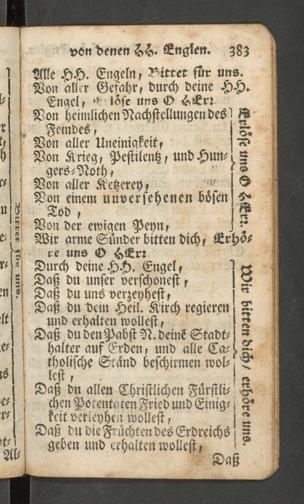 von denen HH. Englen. 383
Alle HH. Engeln, Bittet für uns.
Von aller Gefahr, durch deine HH.
Engel, Erlöse uns O HErr
Von heimlichen Nachstellungen des
Feindes,
Von aller Uneinigkeit,
Von Krieg, Pestilentz, und Hun-
gers-Noth,
Von aller Ketzerey,
Von einem unversehenen bösen
Tod,
Von der ewigen Peyn,
Erlöse uns O HErr.
Wir arme Sünder bitten dich, Erhö-
re uns O HErr
Durch deine HH. Engel,
Daß du unser verschonest,
Daß du uns verzeyhest,
Daß du dein Heil. Kirch regieren
und erhalten wollest,
Daß du den Pabst N. deinē Stadt-
halter auf Erden, und alle Ca-
tholische Ständ beschirmen wol-
lest,
Daß du allen Christlichen Fürstli-
chen Potentaten Fried und Einig-
keit verleyhen wollest,
Daß du die Früchten des Erdreichs
geben und erhalten wollest,
Wir bitten dich / erhöre uns.
Daß